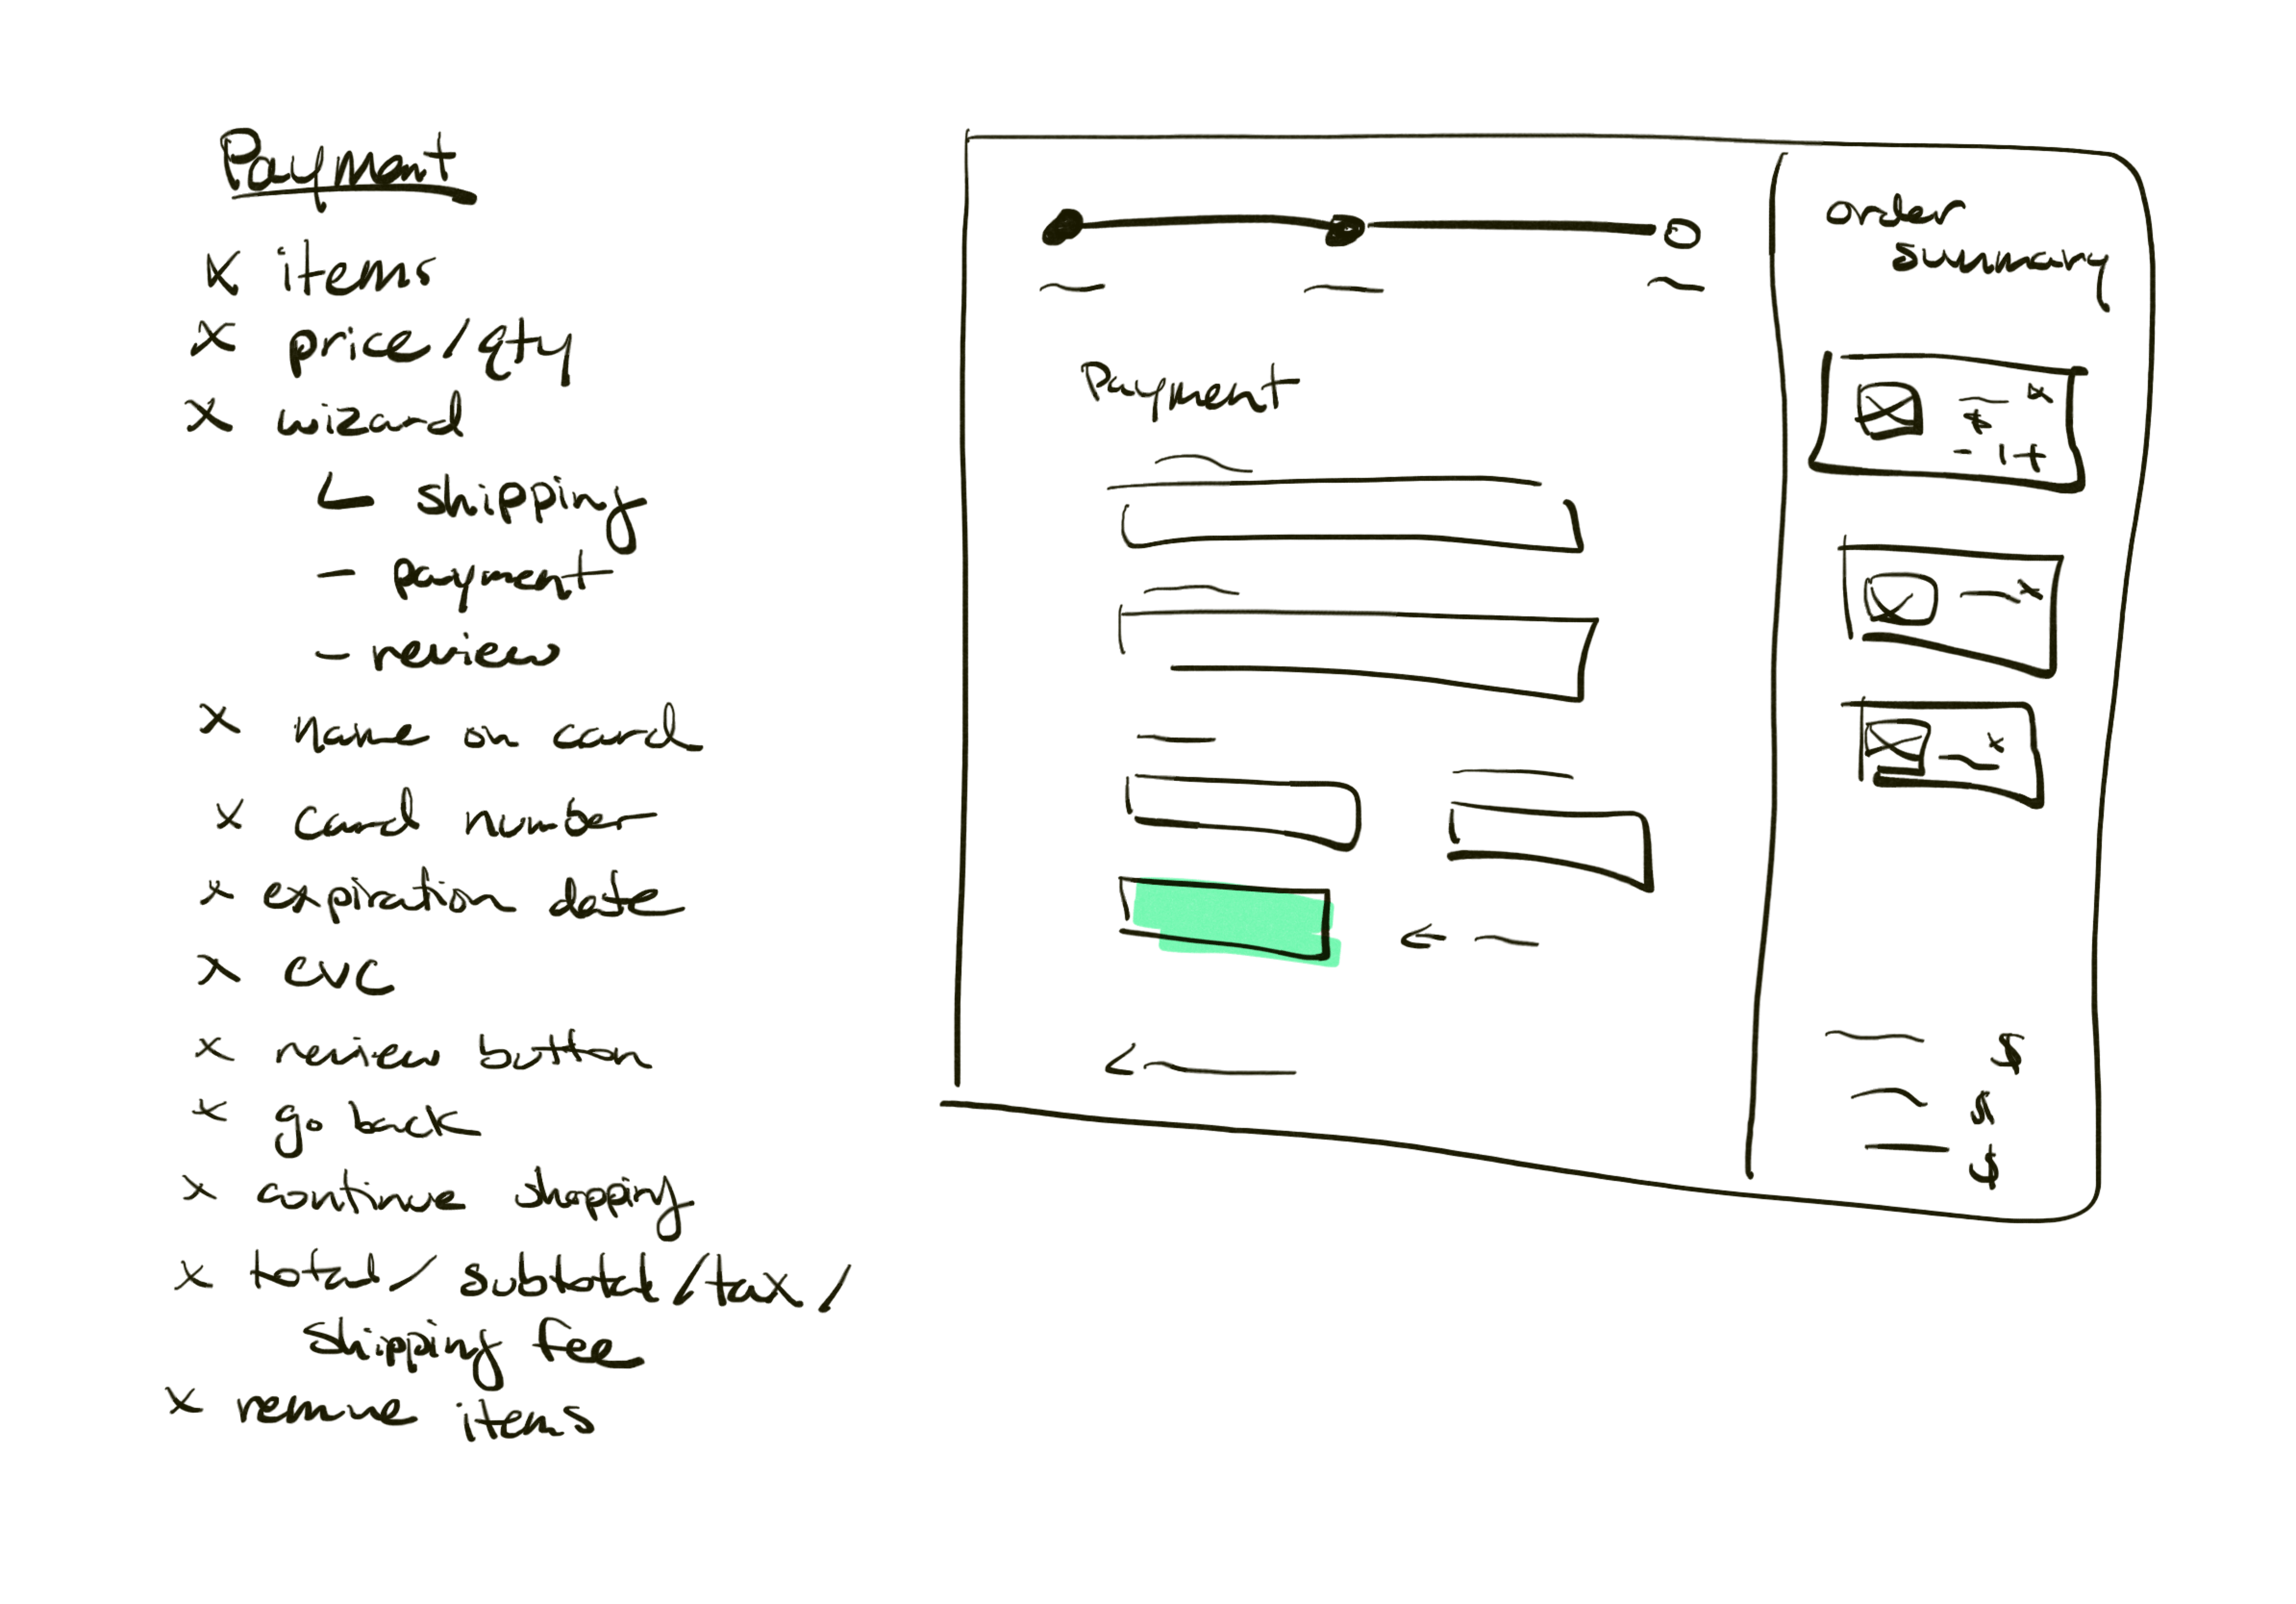 Payment
x items
x price/qty
x wizard
- shipping
- payment
- review
x name on card
x card number
x expiration date
x CVC
x review button
x go back
x continue shopping
x total/subtotal/tax/
shipping fee
x remove items
order
summary
Payment
x
$
- 1 +
x
x
<
<
$
$
$